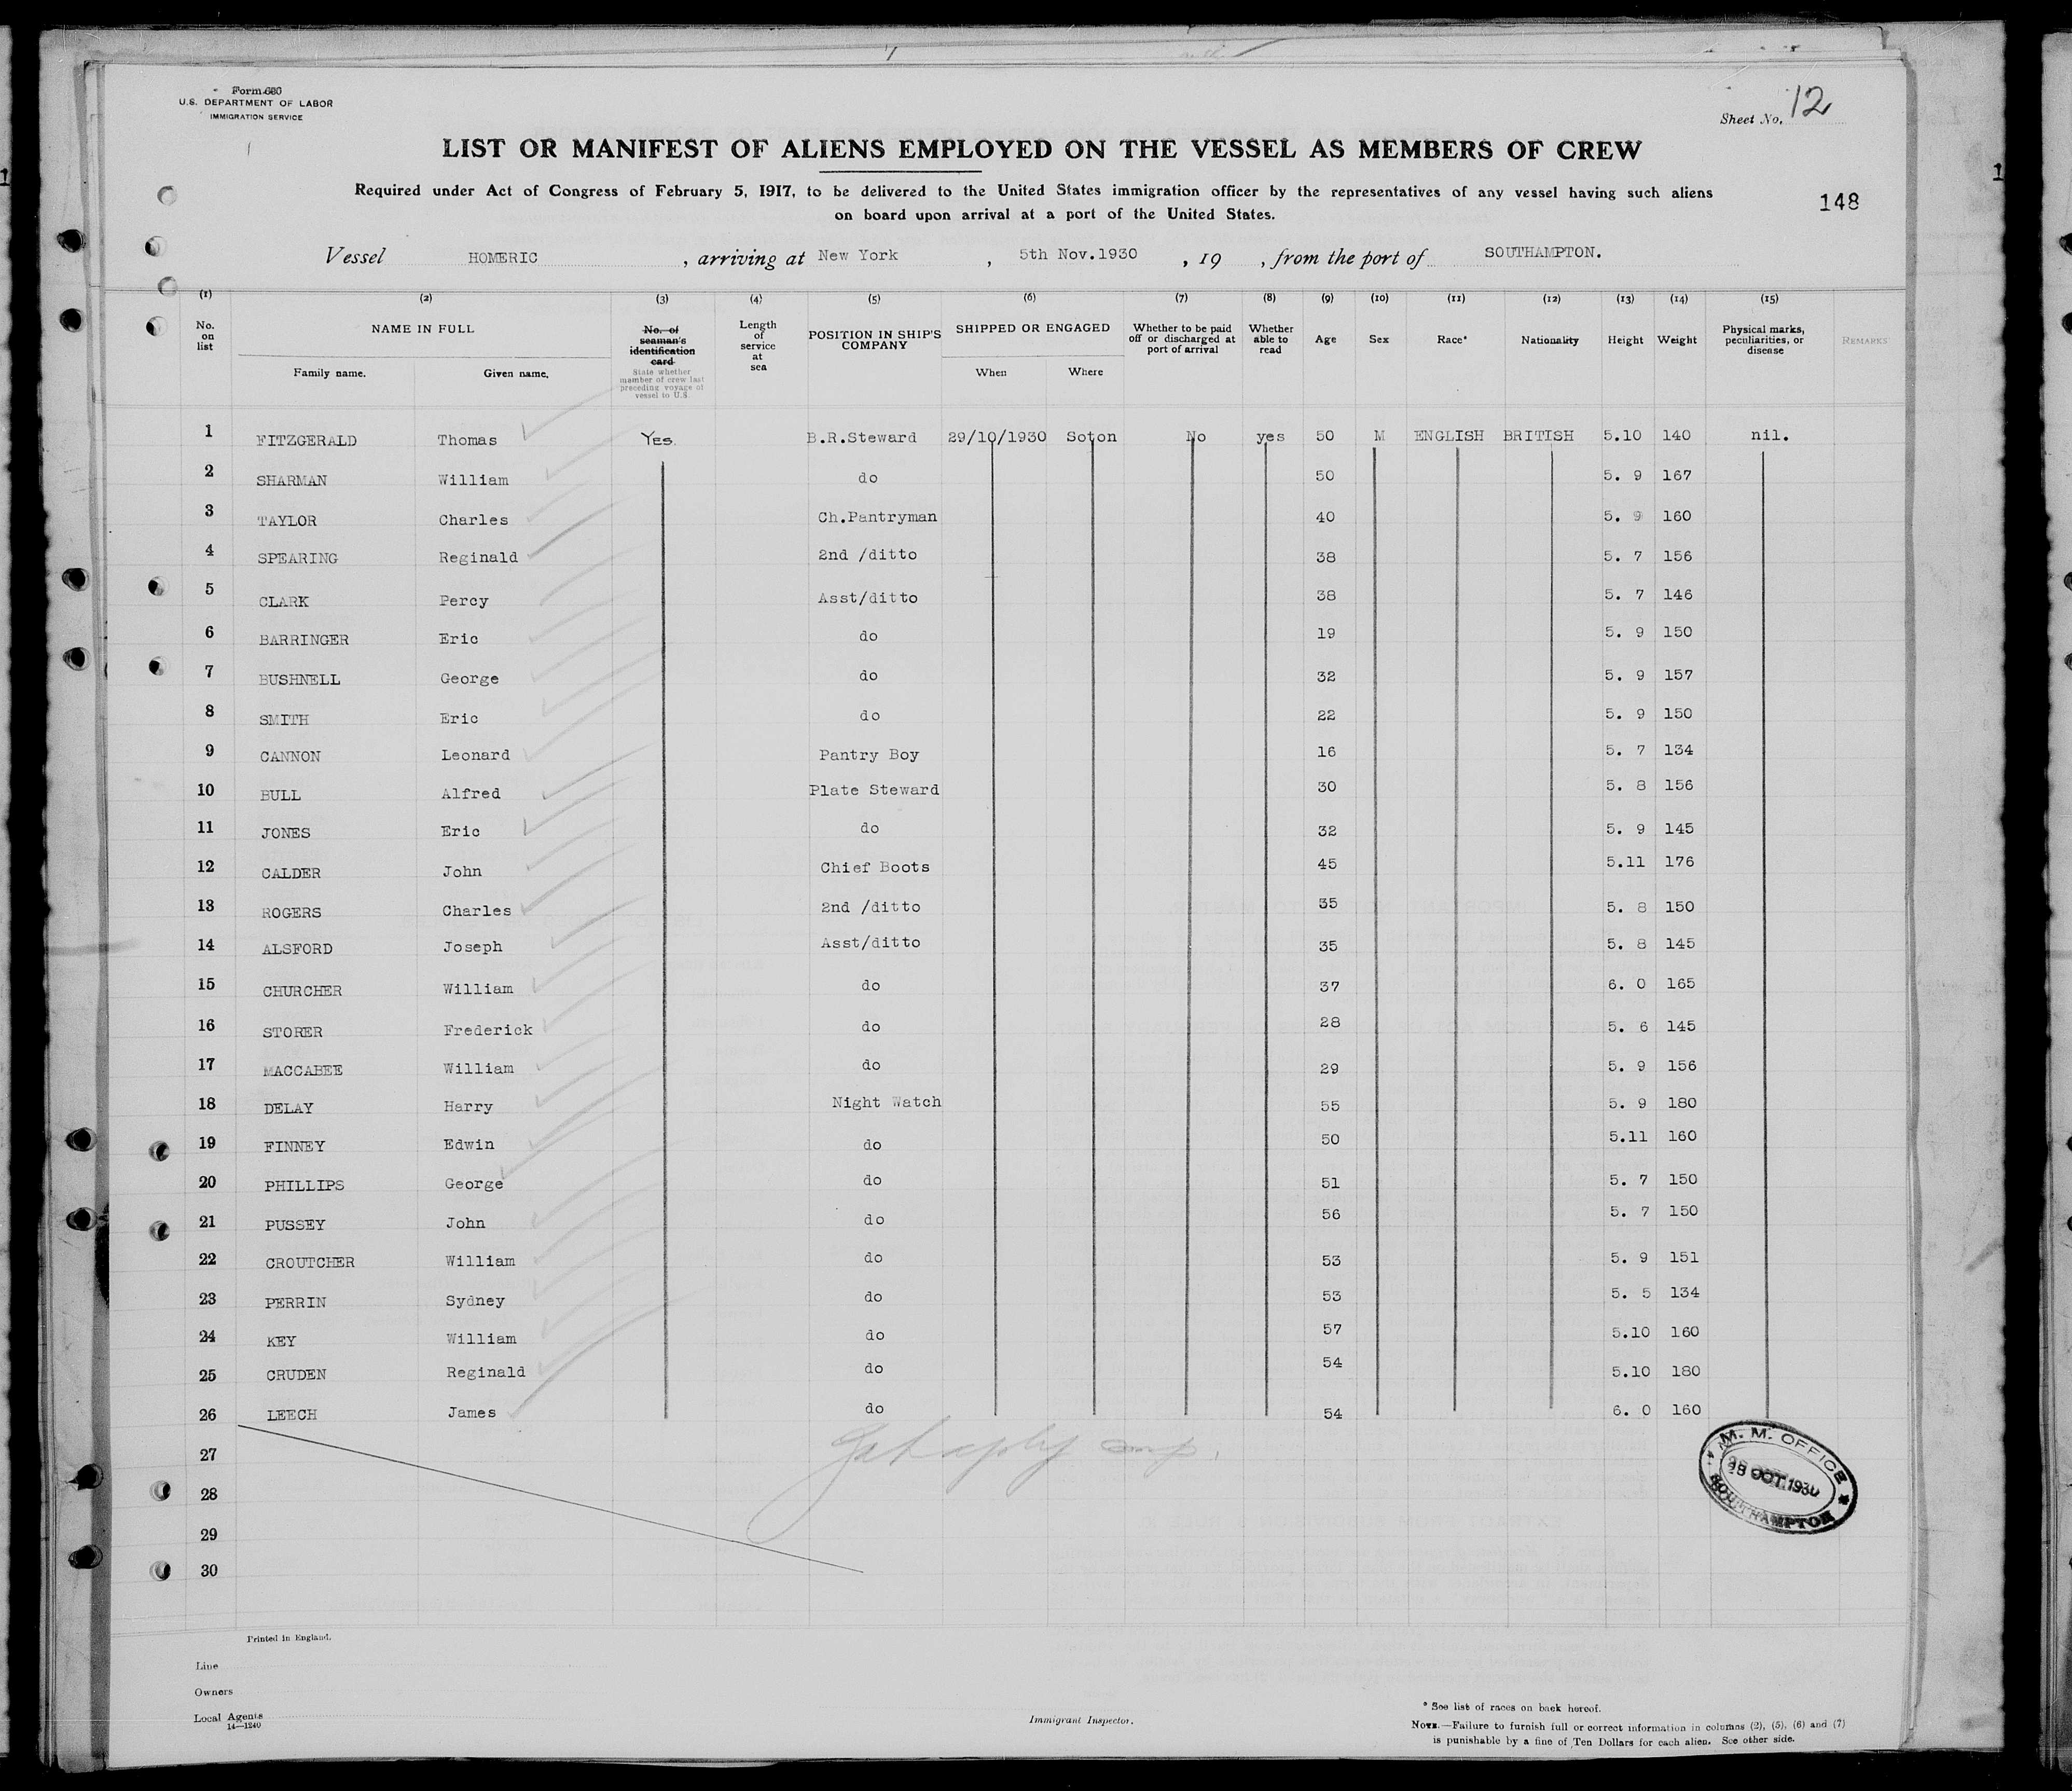 Form 680
U.S. DEPARTMENT OF LABOR
IMMIGRATION SERVICE
Sheet No. 12
LIST OR MANIFEST OF ALIENS EMPLOYED ON THE VESSEL AS MEMBERS OF CREW
Required under Act of Congress of February 5, 1917, to be delivered to the United States immigration officer by the representatives of any vessel having such aliens
on board upon arrival at a port of the United States.
148
Vessel HOMERIC , arriving at New York , 5th Nov.1930 , 19 , from the port of SOUTHAMPTON.
(1) (2) (3) (4) (5) (6) (7) (8) (9) (10) (11) (12) (13) (14) (15)
No. on list
NAME IN FULL
Family name. Given name.
No. of seaman's identification card
State whether member of crew last preceding voyage of vessel to U.S.
Length of service at sea
POSITION IN SHIP'S COMPANY
SHIPPED OR ENGAGED
When Where
Whether to be paid off or discharged at port of arrival
Whether able to read
Age
Sex
Race*
Nationality
Height
Weight
Physical marks, peculiarities, or disease
REMARKS
1 FITZGERALD Thomas Yes. B.R.Steward 29/10/1930 Soton No yes 50 M ENGLISH BRITISH 5.10 140 nil.
2 SHARMAN William do 50 5. 9 167
3 TAYLOR Charles Ch.Pantryman 40 5. 9 160
4 SPEARING Reginald 2nd /ditto 38 5. 7 156
5 CLARK Percy Asst/ditto 38 5. 7 146
6 BARRINGER Eric do 19 5. 9 150
7 BUSHNELL George do 32 5. 9 157
8 SMITH Eric do 22 5. 9 150
9 CANNON Leonard Pantry Boy 16 5. 7 134
10 BULL Alfred Plate Steward 30 5. 8 156
11 JONES Eric do 32 5. 9 145
12 CALDER John Chief Boots 45 5.11 176
13 ROGERS Charles 2nd /ditto 35 5. 8 150
14 ALSFORD Joseph Asst/ditto 35 5. 8 145
15 CHURCHER William do 37 6. 0 165
16 STORER Frederick do 28 5. 6 145
17 MACCABEE William do 29 5. 9 156
18 DELAY Harry Night Watch 55 5. 9 180
19 FINNEY Edwin do 50 5.11 160
20 PHILLIPS George do 51 5. 7 150
21 PUSSEY John do 56 5. 7 150
22 CROUTCHER William do 53 5. 9 151
23 PERRIN Sydney do 53 5. 5 134
24 KEY William do 57 5.10 160
25 CRUDEN Reginald do 54 5.10 180
26 LEECH James do 54 6. 0 160
27
28
29
30
M. M. OFFICE
OCT.1930
SOUTHAMPTON
Printed in England.
Line
Owners
Local Agents
14—1240
Immigrant Inspector.
* See list of races on back hereof.
NOTE.—Failure to furnish full or correct information in columns (2), (5), (6) and (7)
is punishable by a fine of Ten Dollars for each alien. See other side.